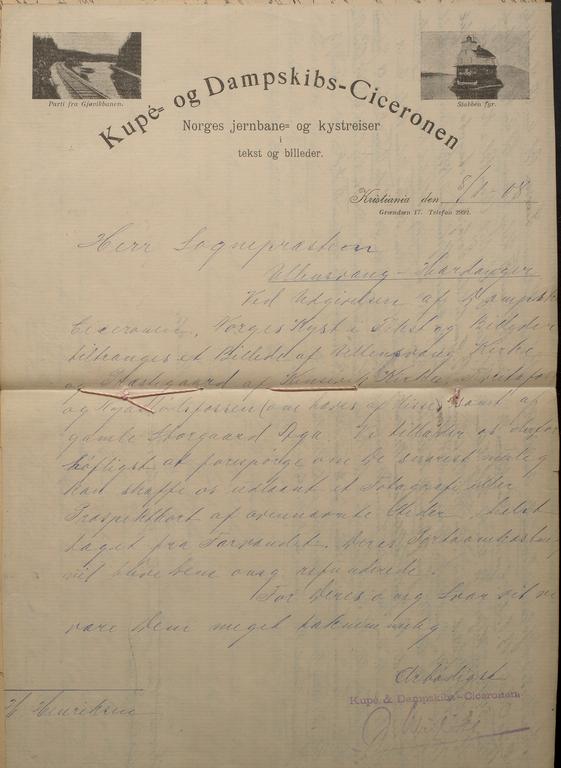 Parti fra Gjøvikbanen.
Stabben fyr.
Kupé= og Dampskibs-Ciceronen
Norges jernbane= og kystreiser
i
tekst og billeder.
Kristiania den 8/1-08
Grændsen 17. Telefon
Herr Sogneprästen
Ullensvang - Hardanger
Ved Udgivelsen af Dampsk
Ciceronen, Norges Kyst i Text og Billeder
tiltrænges et Billede af Ullensvang Kirke
og Prästegaard af Kinservig Kirke
og (om haves af disse) samt af
gamle Storgaard Aga. Vi tillader os derfor
høfligst at forespørge om De snarest mulig
kan skaffe os udlaant et Fotografi eller
Prospektkort af ovennævnte Steder, helst
taget fra Forvandet. Deres Portoomkostn
vil blive Dem omg refunderede.
For Deres omg Svar vil vi
være Dem meget taknemmelig
Ærbødigst
Kupé & Dampskibs-Ciceronen
Henriksen